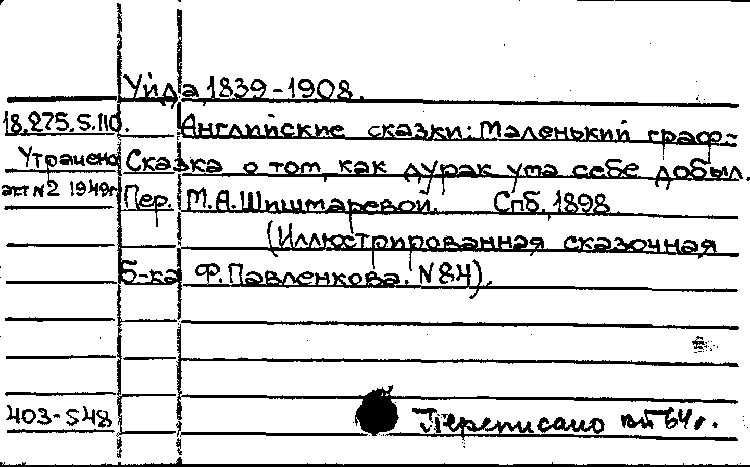 Уйда, 1839-1908.
18.275.S.110. Английские сказки: Маленький граф.-
Утрачено Сказка о том, как дурак ума себе добыл.
акт №2 1949г Пер. М.А.Шишмаревой. Спб, 1898.
(Иллюстрированная сказочная
б-ка Ф.Павленкова. №84).
403-548 Переписано 64 г.